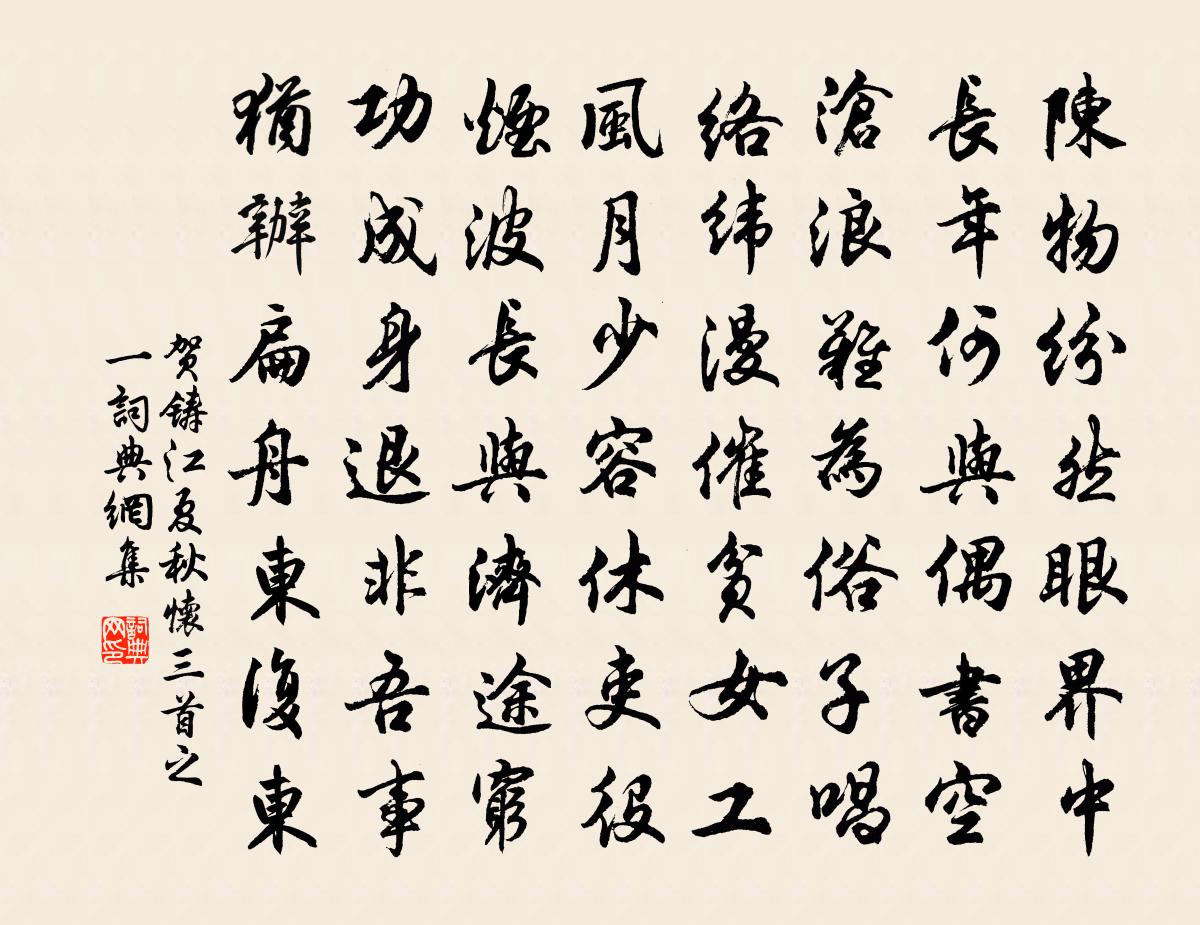 陳物紛然眼界中
長年何與偶書空
滄浪難為俗子唱
絡緯漫催貧女工
風月少容休吏役
煙波長與濟途窮
功成身退非吾事
猶辦扁舟東復東
贺鑄江夏秋懷三首之
一詞典網集
詞典网印